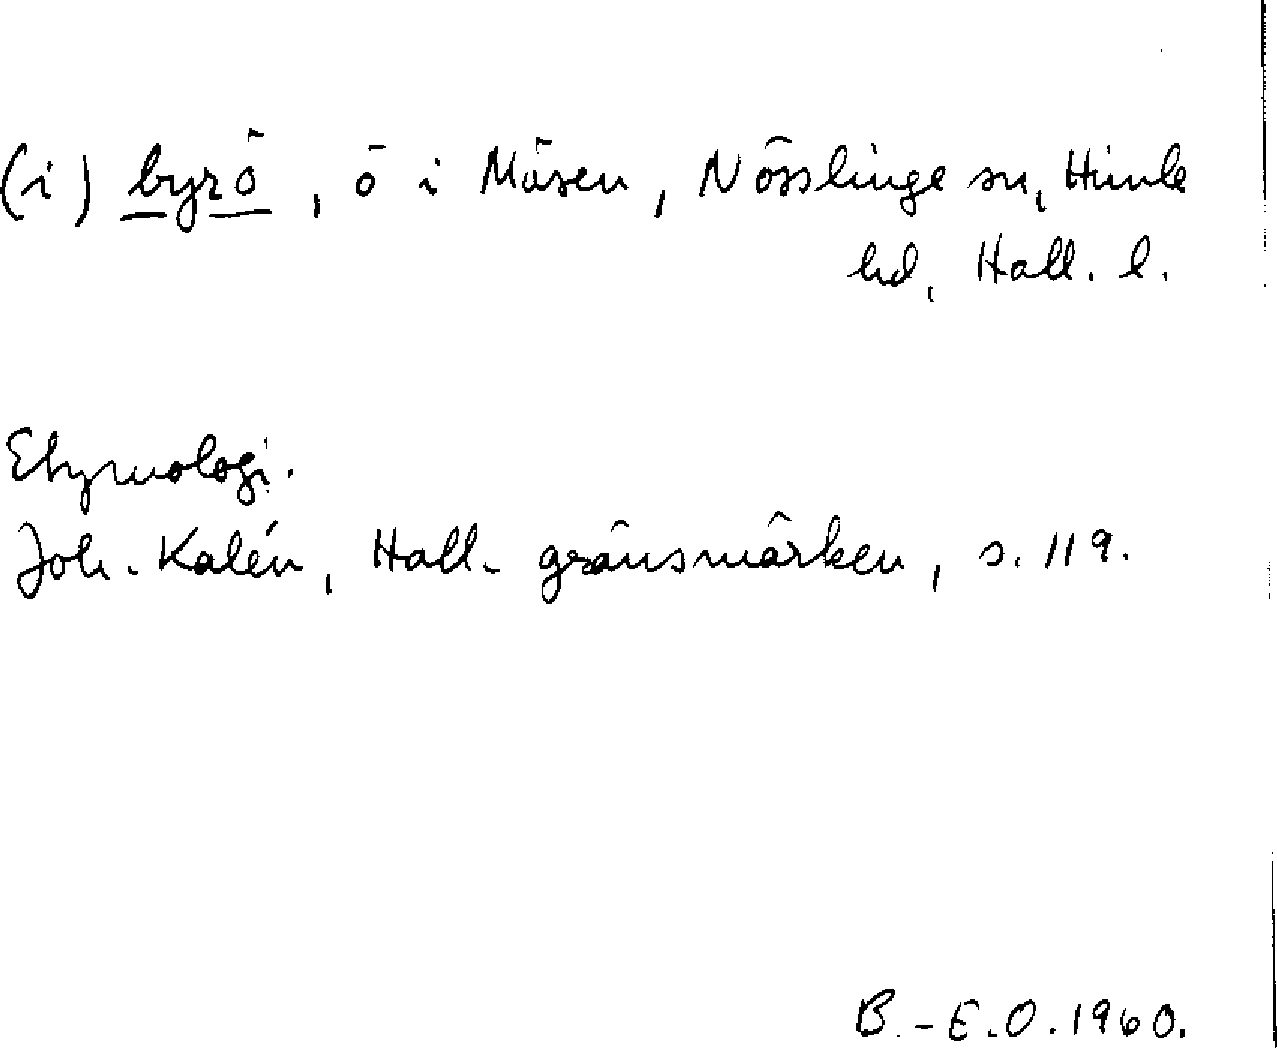 (i) byrö, ö i Mäsen, Nösslinge sn, Himle
hd, Hall. l.
Etymologi.
Joh. Kalén, Hall. gränsmärken, s. 119.
B.-E.O. 1960.